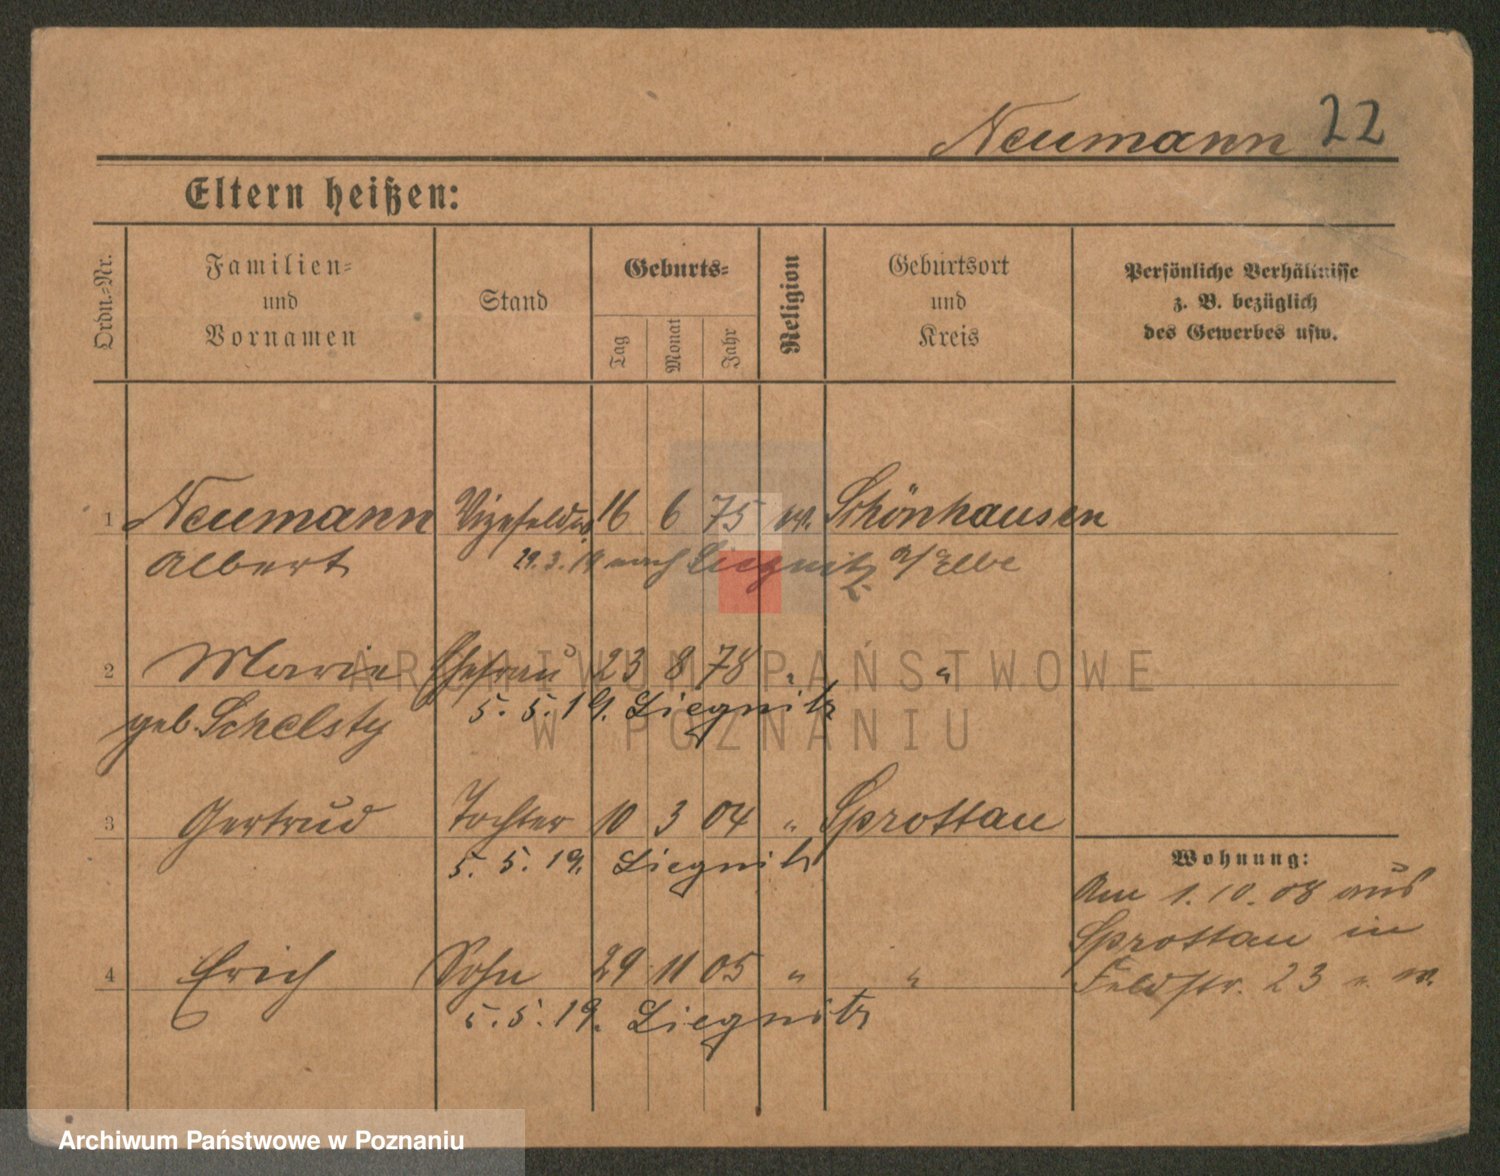 Neumann 22
Eltern heißen:
Ordn.-Nr.
Familien-
und
Vornamen
Stand
Geburts-
Tag
Monat
Jahr
Religion
Geburtsort
und
Kreis
Persönliche Verhältnisse
z. B. bezüglich
des Gewerbes usw.
1 Neumann Vizefeldw. 16 6 75 ev. Schönhausen
Albert 29.3.19 nach Liegnitz a/Elbe
2 Marie Ehefrau 23 8 78 " "
geb. 5. 5. 19. Liegnitz
3 Gertrud Tochter 10 3 04 " Sprottau
5. 5. 19. Liegnitz
Wohnung:
Am 1. 10. 08 aus
Sprottau in
Feldstr. 23
4 Erich Sohn 29 11 05 " "
5. 5. 19. Liegnitz
ARCHIWUM PAŃSTWOWE
W POZNANIU
Archiwum Państwowe w Poznaniu